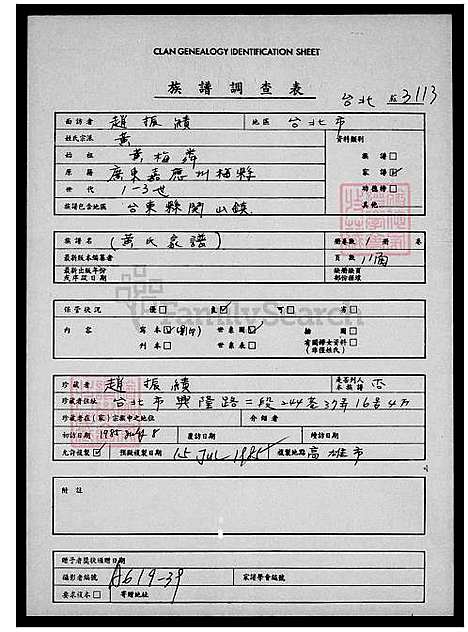 CLAN GENEALOGY IDENTIFICATION SHEET
族譜調查表
台北 3113
面訪者 趙振績 地區 台北市
姓氏宗派 黃 資料類別
始祖 黃梅 族譜 □
原籍 廣東嘉應州梅縣 家譜 ☑
世代 1-3世 功德榜 □
族譜包含地區 台東縣關山鎮 其他
族譜名 (黃氏家譜) 冊卷數 1 冊 卷
最新版本編纂者 頁數 11面
最新出版年份
或序跋日期
保管狀況 優 □ 良 ☑ 可 □ 劣 □
內容 寫本 世系圖 繪圖 □
刊本 □ 世系表 □ 有關婦女資料 □
珍藏者 趙振績 是否列入本族譜 否
珍藏者住址 台北市興隆路二段244巷37弄16号4
珍藏者在(家)宗族中之地位 介紹者
初訪日期 1985 8 覆訪日期 續訪日期
允許複製 ☑ 預擬複製日期 15 Jul 1985 複製地點 高雄市
附註
贈予者獎狀頒贈日期
攝影者編號 A619-39 家譜學會編號
要求複本 □ 寄贈地址
FamilySearch